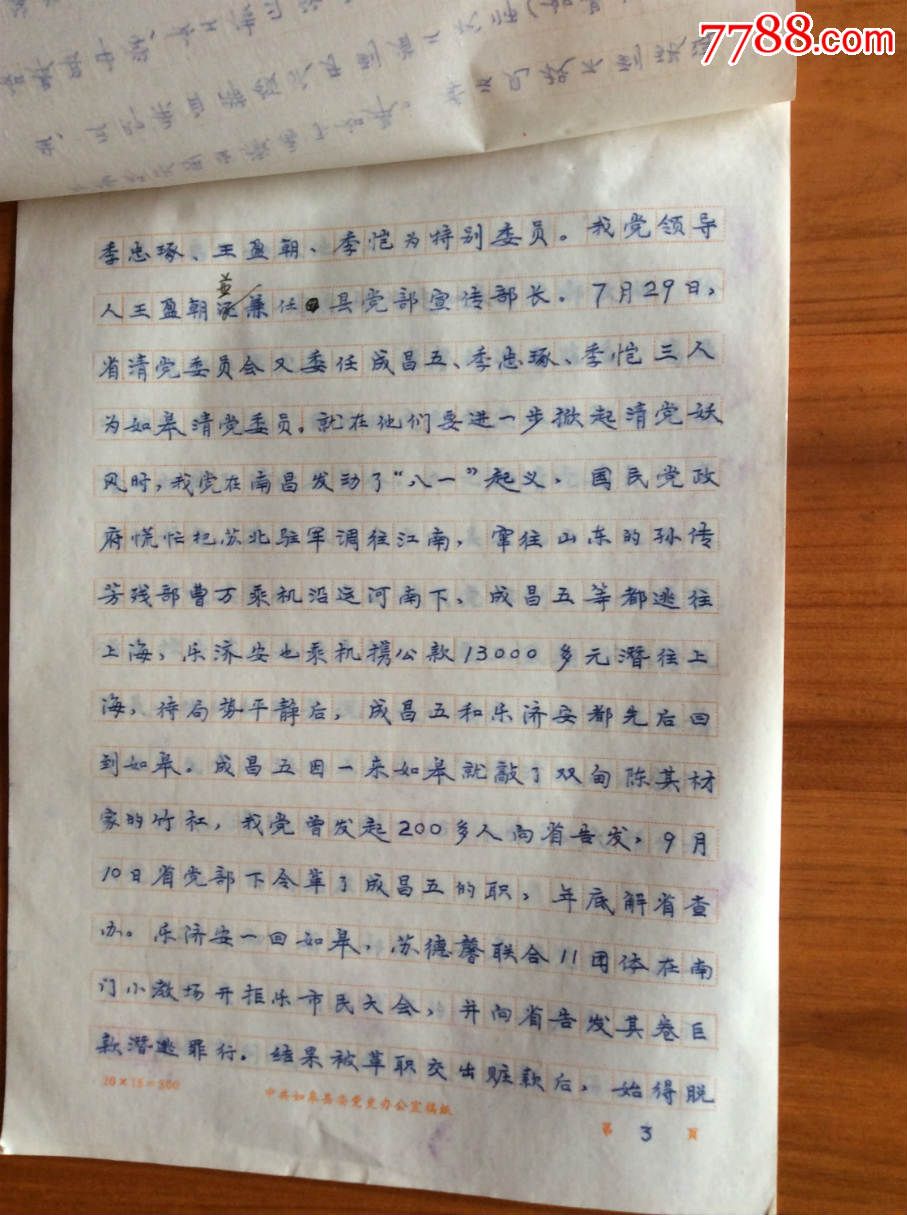 7788.com
李忠琢、王盈朝、李恺为特别委员。我党领导
人王盈朝兼任县党部宣传部长。7月29日,
省清党委员会又委任成昌五、李忠琢、李恺三人
为如皋清党委员。就在他们要进一步掀起清党妖
风时,我党在南昌发动了“八一”起义。国民党政
府慌忙把苏北驻军调往江南,窜往山东的孙传
芳残部曹万乘机沿运河南下、成昌五等都逃往
上海,乐济安也乘机携公款13000多元潜往上
海,待局势平静后,成昌五和乐济安都先后回
到如皋。成昌五因一来如皋就敲了双甸陈其材
家的竹杠,我党曾发起200多人向省告发,9月
10日省党部下令革了成昌五的职,年底解省查
办。乐济安一回如皋,苏德馨联合11团体在南
门小教场开拒乐市民大会,并向省告发其卷巨
款潜逃罪行。结果被革职交出赃款后,始得脱
20×15=300
中共如皋县委党史办公室稿纸
第 3 页